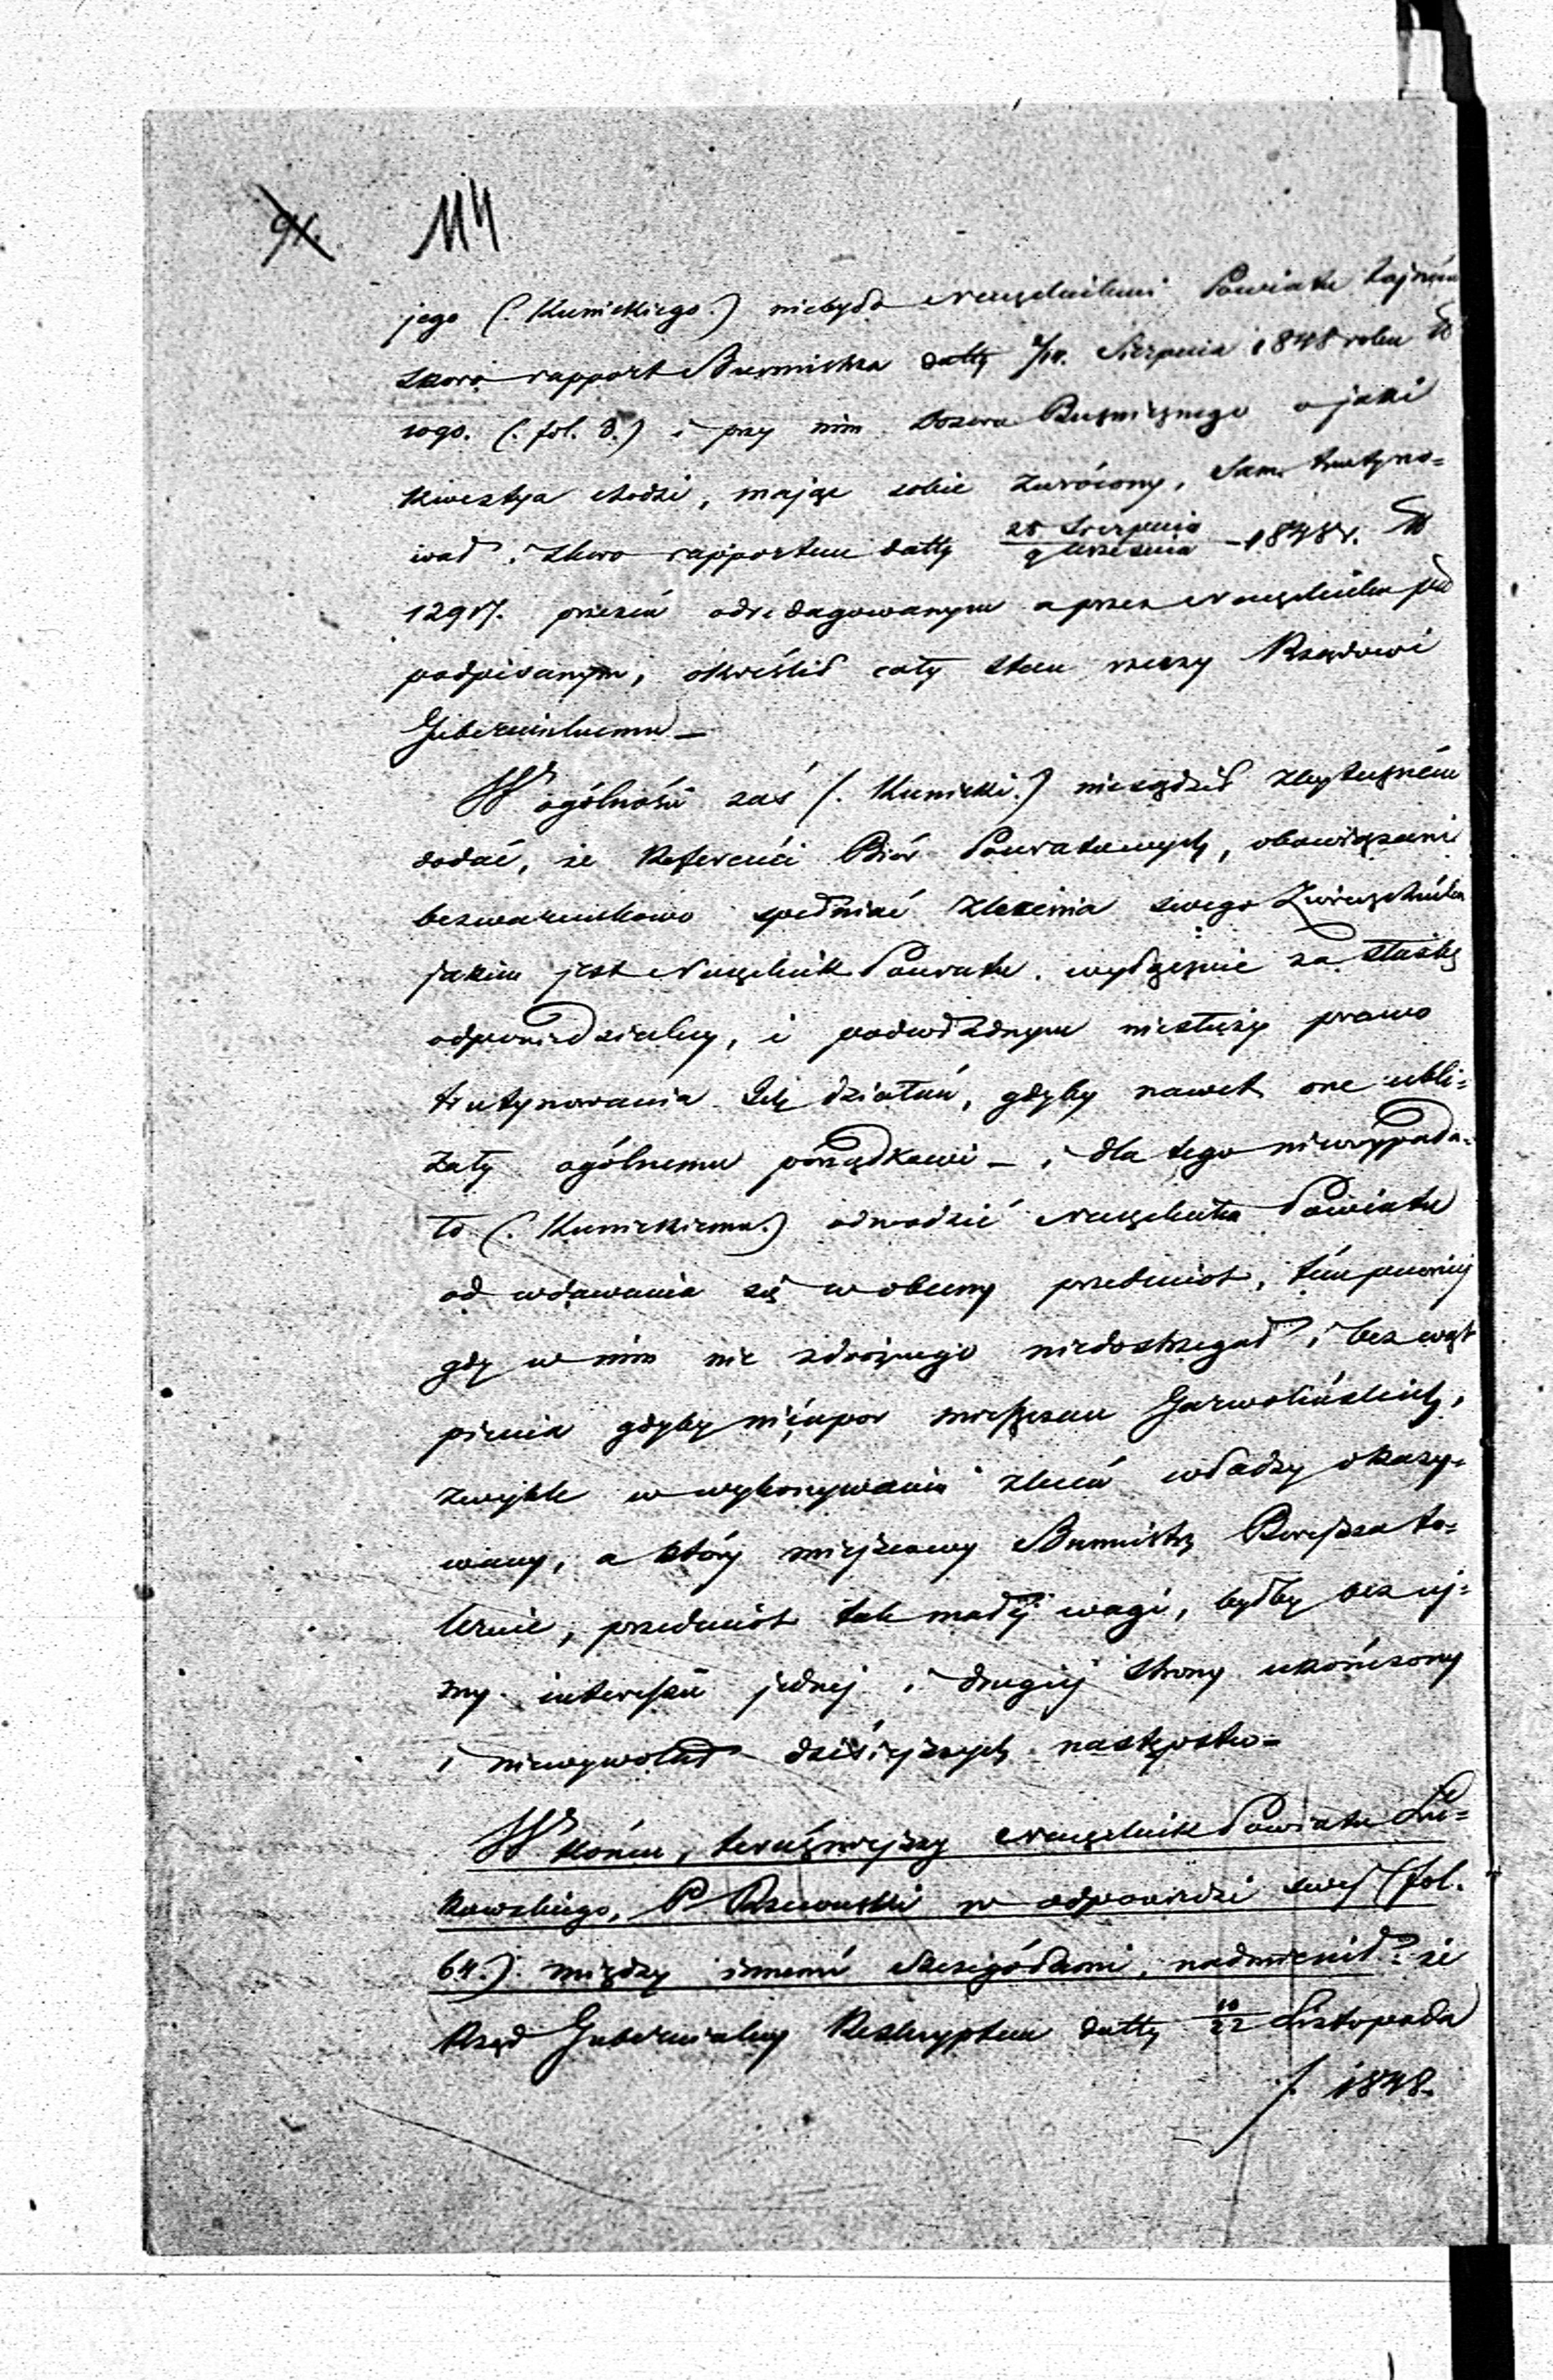 91. 114
jego (. Kunickiego.) niebyło Naczelnikowi Powiatu tajném
skoro rapport Burmistrza datty 7/19. Sierpnia 1848 roku N
1090. (. fol. 8.) i przy nim Dozoru Bużnicznego o jaki
kwestya chodzi, mając sobie zwrócony, Sam trutyno=
wał i skoro rapportem datty 28 Sierpnia / 9 Września 1848 r. N
12917. przezeń odredagowanym a przez Naczelnika
podpisanym, określił cały stan rzeczy Rządowi
Gubernialnemu —
W ogólności zaś (. Kunicki.) niesądził zbyteczném
dodać, że Referenci Biór Powiatowych, obowiązani
bezwarunkowo spełniać zlecenia swego Zwierzchnika
jakim jest Naczelnik Powiatu, wyłącznie za służbę
odpowiedzialny, i podwładnym niesłuży prawo
trutynowania Jéj działań, gdyby nawet one ubli=
żały ogólnemu porządkowi — i dla tego niewypada=
ło (. Kunickiemu.) odwodzić Naczelnika Powiatu
od wdawania się w obecny przedmiot, tém pewniéj
gdy w nim nic zdrożnego niedostrzegał i bez wąt
pienia gdyby nie upor mieszczan Garwolińskich,
zwykle w wykonywaniu zleceń władzy okazy=
wany, a który miejscowy Burmistrz
przedmiot tak małéj wagi, byłby bez uj=
my interessu jednéj i drugiéj strony ukończony
i niewywołał dzisiejszych następstw=
W końcu, teraźniejszy Naczelnik Powiatu Łu=
kowskiego, P. w odpowiedzi swéj (fol.
64.) między innemi szczegółami, nadmienił: że
Rząd Gubernialny Reskryptem datty 10/22 Listopada
f. 1848.